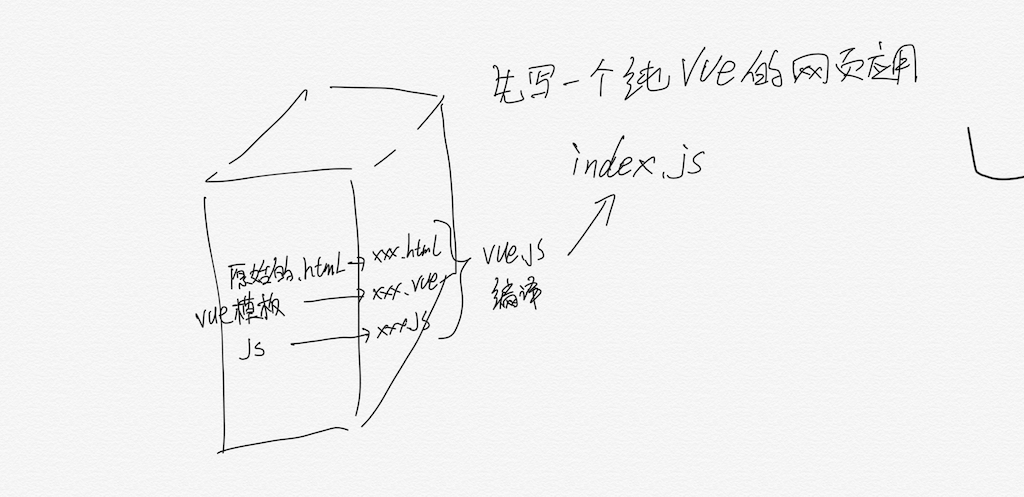 先写一个纯Vue的网页应用
index.js
原始的.html
xxx.html
vue模板
xxx.vue
js
xxx.js
vue.js
编译